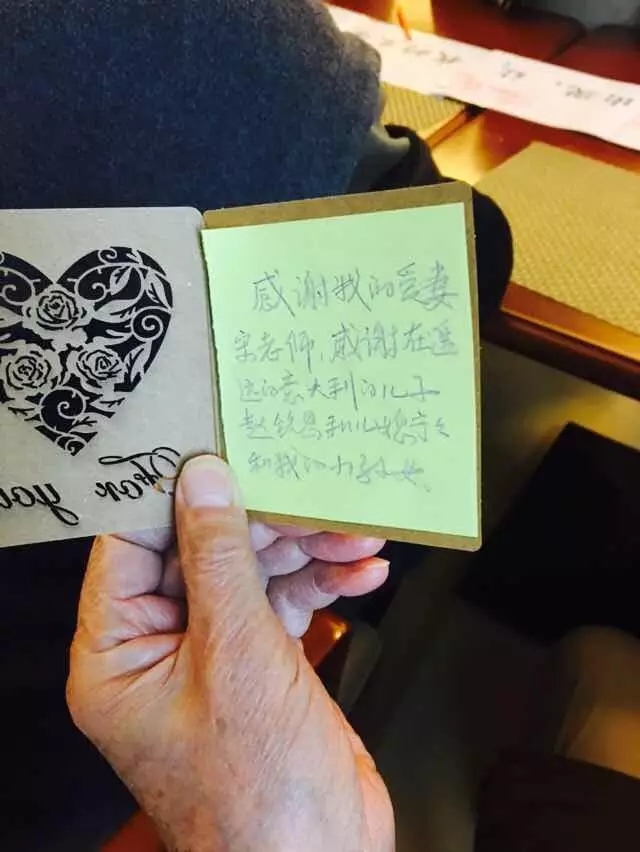 For
you
感谢我的爱妻
宋老师,感谢在遥
远的意大利的儿子
赵钦和儿媳宁宁
和我的小孙女、